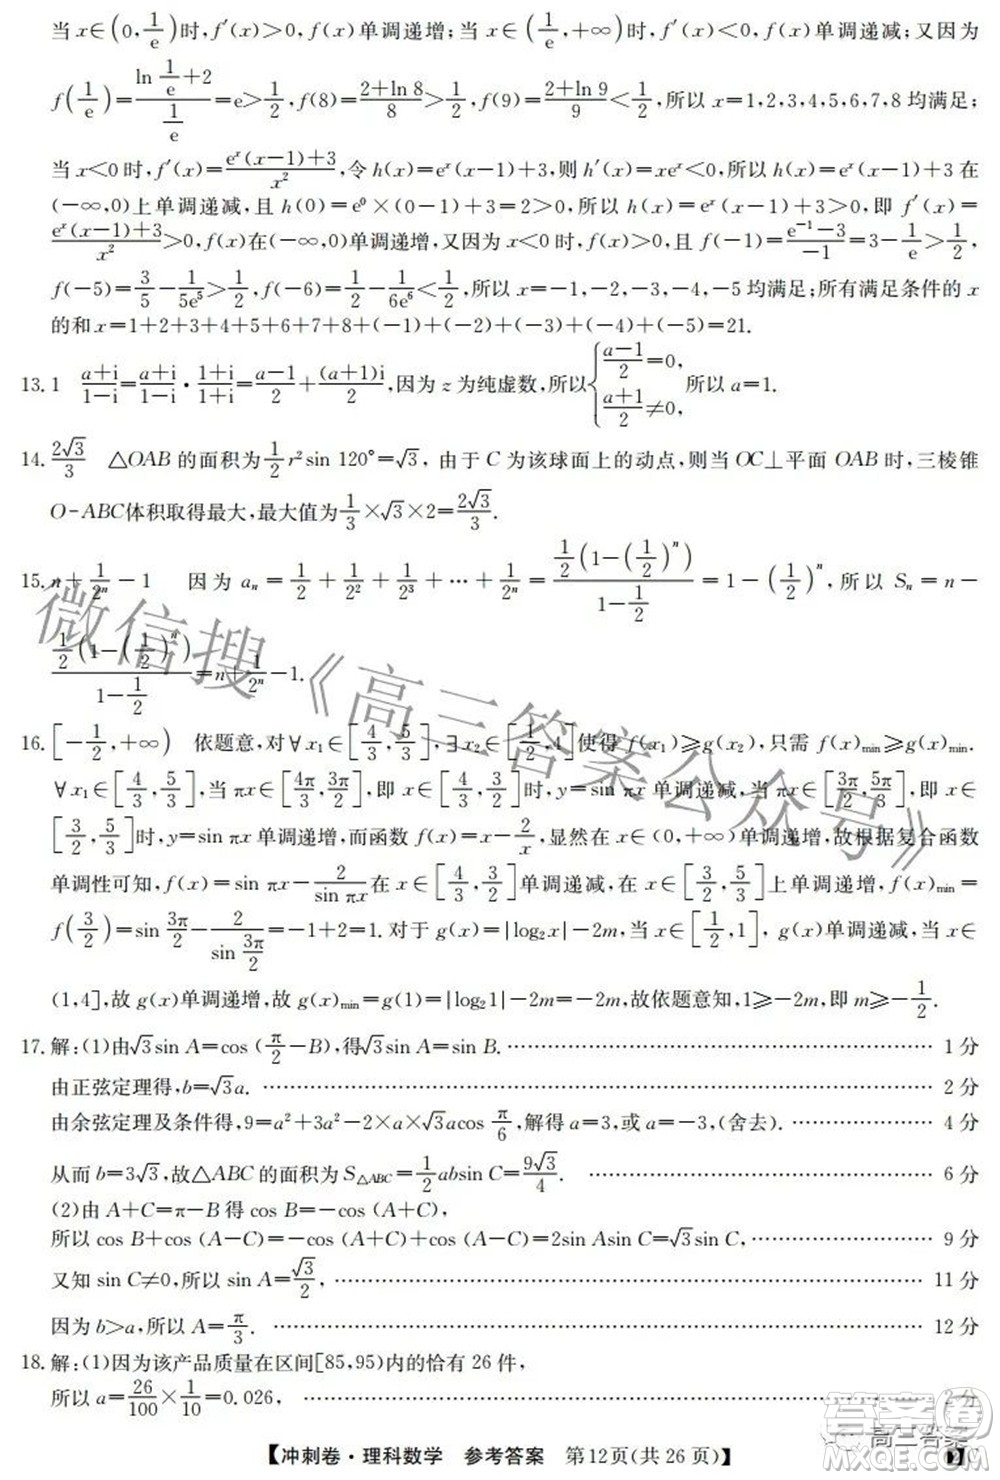 当 x∈(0,1/e)时,f′(x)>0,f(x)单调递增;当 x∈(1/e,+∞)时,f′(x)<0,f(x)单调递减;又因为
f(1/e)=(ln 1/e+2)/(1/e)=e>1/2,f(8)=(2+ln 8)/8>1/2,f(9)=(2+ln 9)/9<1/2,所以 x=1,2,3,4,5,6,7,8 均满足;
当 x<0 时,f′(x)=(eˣ(x−1)+3)/x²,令 h(x)=eˣ(x−1)+3,则 h′(x)=xeˣ<0,所以 h(x)=eˣ(x−1)+3 在
(−∞,0)上单调递减,且 h(0)=e⁰×(0−1)+3=2>0,所以 h(x)=eˣ(x−1)+3>0,即 f′(x)=
(eˣ(x−1)+3)/x²>0,f(x)在(−∞,0)单调递增,又因为 x<0 时,f(x)>0,且 f(−1)=(e⁻¹−3)/(−1)=3−1/e>1/2,
f(−5)=3/5−1/(5e⁵)>1/2,f(−6)=1/2−1/(6e⁶)<1/2,所以 x=−1,−2,−3,−4,−5 均满足;所有满足条件的 x
的和 x=1+2+3+4+5+6+7+8+(−1)+(−2)+(−3)+(−4)+(−5)=21.
13.1 (a+i)/(1−i)=(a+i)/(1−i)·(1+i)/(1+i)=(a−1)/2+(a+1)i/2,因为 z 为纯虚数,所以{(a−1)/2=0, (a+1)/2≠0, 所以 a=1.
14.2√3/3 △OAB 的面积为1/2 r²sin 120°=√3, 由于 C 为该球面上的动点,则当 OC⊥平面 OAB 时,三棱锥
O-ABC体积取得最大,最大值为1/3×√3×2=2√3/3.
15.n+1/2ⁿ−1 因为 aₙ=1/2+1/2²+1/2³+…+1/2ⁿ=(1/2(1−(1/2)ⁿ))/(1−1/2)=1−(1/2)ⁿ,所以 Sₙ=n−
(1/2(1−(1/2)ⁿ))/(1−1/2)=n+1/2ⁿ−1.
16.[−1/2,+∞) 依题意,对∀x₁∈[4/3,5/3],∃x₂∈[1/2,4]使得 f(x₁)≥g(x₂),只需 f(x)min≥g(x)min.
∀x₁∈[4/3,5/3],当 πx∈[4π/3,3π/2],即 x∈[4/3,3/2]时,y=sin πx 单调递减,当 πx∈[3π/2,5π/3],即 x∈
[3/2,5/3]时,y=sin πx 单调递增,而函数 f(x)=x−2/x,显然在 x∈(0,+∞)单调递增,故根据复合函数
单调性可知,f(x)=sin πx−2/sin πx在 x∈[4/3,3/2]单调递减,在 x∈[3/2,5/3]上单调递增,f(x)min=
f(3/2)=sin 3π/2−2/(sin 3π/2)=−1+2=1.对于 g(x)=|log₂x|−2m,当 x∈[1/2,1],g(x)单调递减,当 x∈
(1,4],故 g(x)单调递增,故 g(x)min=g(1)=|log₂1|−2m=−2m,故依题意知,1≥−2m,即 m≥−1/2.
17.解:(1)由√3sin A=cos (π/2−B),得√3sin A=sin B. …… 1 分
由正弦定理得,b=√3a. …… 2 分
由余弦定理及条件得,9=a²+3a²−2×a×√3acos π/6,解得 a=3,或 a=−3,(舍去). …… 4 分
从而 b=3√3,故△ABC 的面积为 S△ABC=1/2 absin C=9√3/4. …… 6 分
(2)由 A+C=π−B 得 cos B=−cos(A+C),
所以 cos B+cos (A−C)=−cos (A+C)+cos(A−C)=2sin Asin C=√3sin C, …… 9 分
又知 sin C≠0,所以 sin A=√3/2, …… 11 分
因为 b>a,所以 A=π/3. …… 12 分
18.解:(1)因为该产品质量在区间[85,95)内的恰有 26 件,
所以 a=26/100×1/10=0.026, …… 2 分
【冲刺卷·理科数学 参考答案 第12页(共 26 页)】
微信搜《高三答案公众号》
答案圈
高三答案